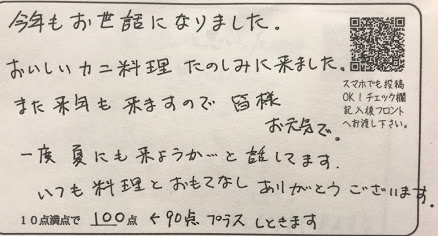 今年もお世話になりました。
おいしいカニ料理 たのしみに来ました。
また来年も来ますので 皆様
お元気で。
一度 夏にも来ようか…と話してます。
いつも料理とおもてなし ありがとう ございます。
10点満点で 100点 ←90点 プラス しときます
スマホでも投稿
OK!チェック欄
記入後フロント
へお渡し下さい。